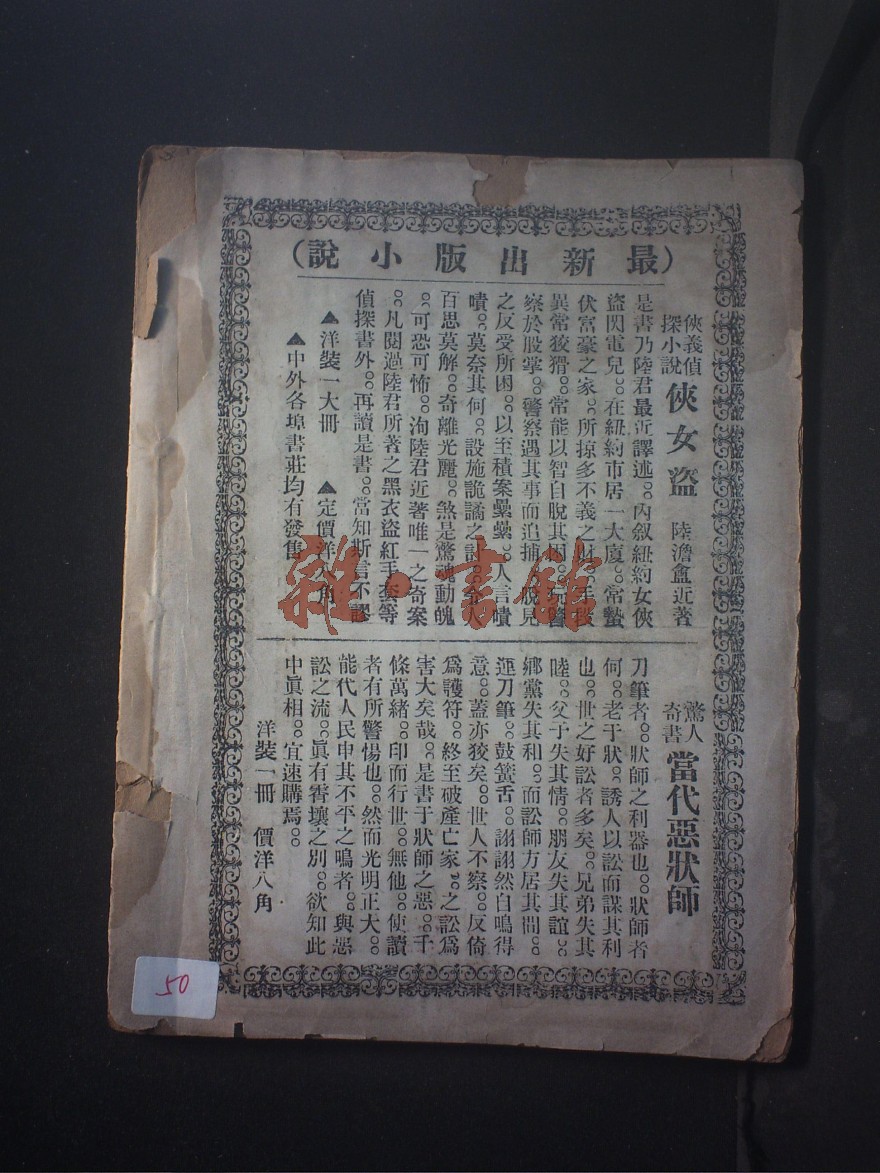 （最新出版小說）
俠義偵
探小說
俠女盜
陸澹盦近著
是書乃陸君最近譯述。內叙紐約女俠
盜閃電兒。在紐約市居一大廈。常蟄
伏富豪之家。所掠多不義之財。
異常狡猾。常能以智自脫其困。玩警
察於股掌。警察遇其事而追捕
之反受所困。以至積案纍纍。人言嘖
嘖。莫奈其何。設施詭譎之計。令人
百思莫解。奇離光麗。煞是驚魂動魄
。可恐可怖。洵陸君近著唯一之奇案
。凡閱過陸君所著之黑衣盜紅手套等
偵探書外。再讀是書。當知斯言不謬
▲洋裝一大冊 ▲定價洋八角
▲中外各埠書莊均有發售
驚人
奇書
當代惡狀師
刀筆者。狀師之利器也。狀師者
何。老于狀。誘人以訟而謀其利
也。世之好訟者多矣。兄弟失其
睦。父子失其情。朋友失其誼。
鄉黨失其和。而訟師方居其間。
逞刀筆。鼓簧舌。詡詡然自鳴得
意。蓋亦狡矣。世人不察。反倚
爲護符。終至破產亡家。之訟爲
害大矣哉。是書于狀師之惡。千
條萬緒。印而行世。無他。使讀
者有所警惕也。然而光明正大。
能代人民申其不平之鳴者。與惡
訟之流。眞有霄壤之別。欲知此
中眞相。宜速購焉。
洋裝一冊 價洋八角
雜·書館
50